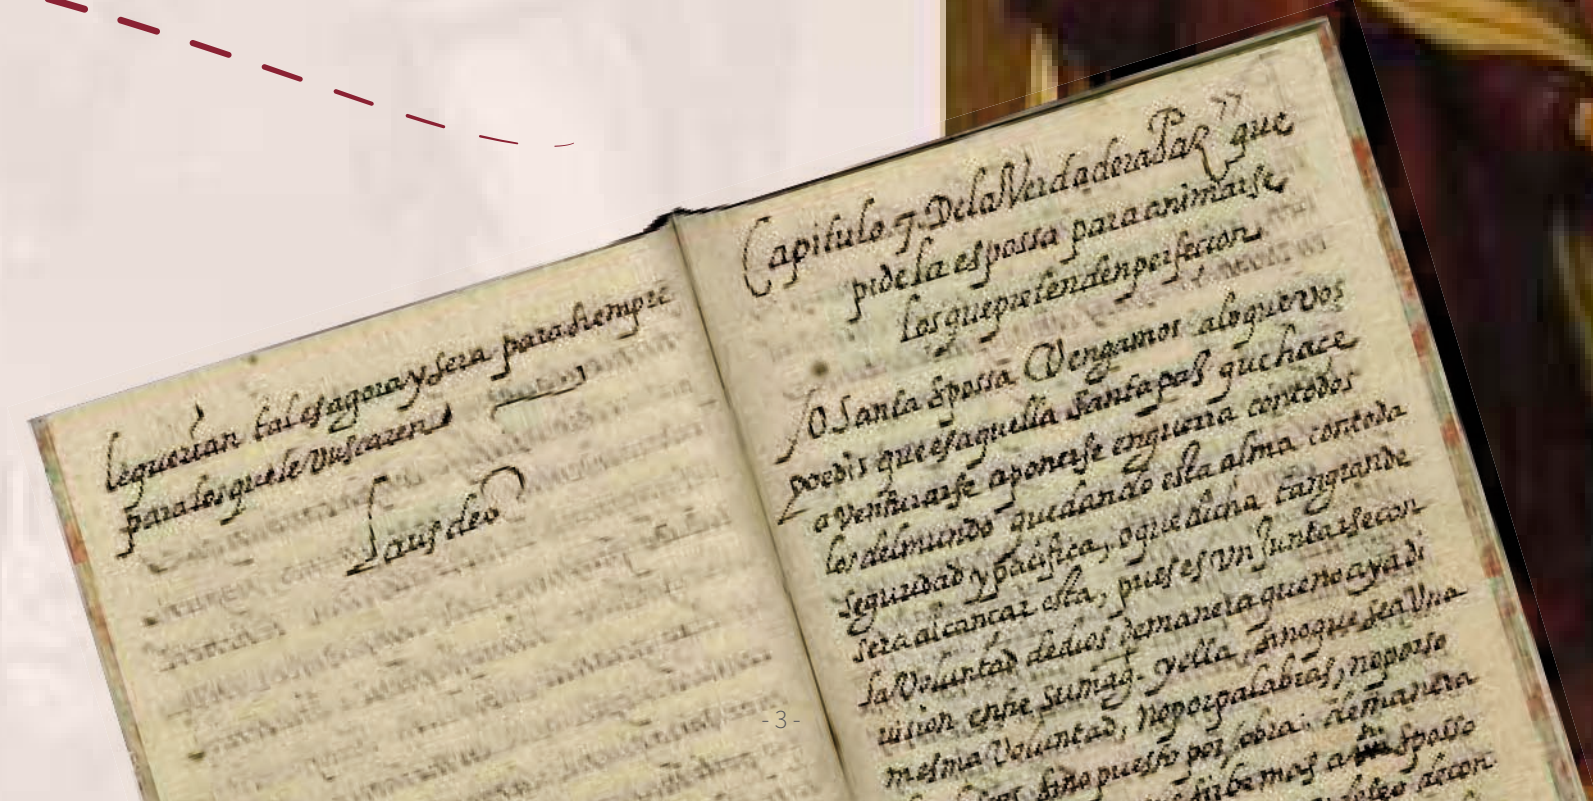 lequerian tal es agora y sera para siempre
para los que le buscaren
Laus deo
Capitulo 7. De la Verdadera Paz que
pide la espossa para animarse
los que pretenden perfecion
O Santa Esposa Vengamos alo que vos
pedis que es aquella Santa paz que hace
aventurarse aponerse en guerra con todos
los del mundo quedando esta alma con toda
seguridad y pacifica, o que dicha tan grande
sera alcanzar esta, pues es un Juntarse con
la Voluntad de dios de manera que no aya di
vision entre su mag. y ella, sino que sea Una
mesma Voluntad, no por palabras, no por so
sino puesto por obra. de manera
Esposso
- 3 -